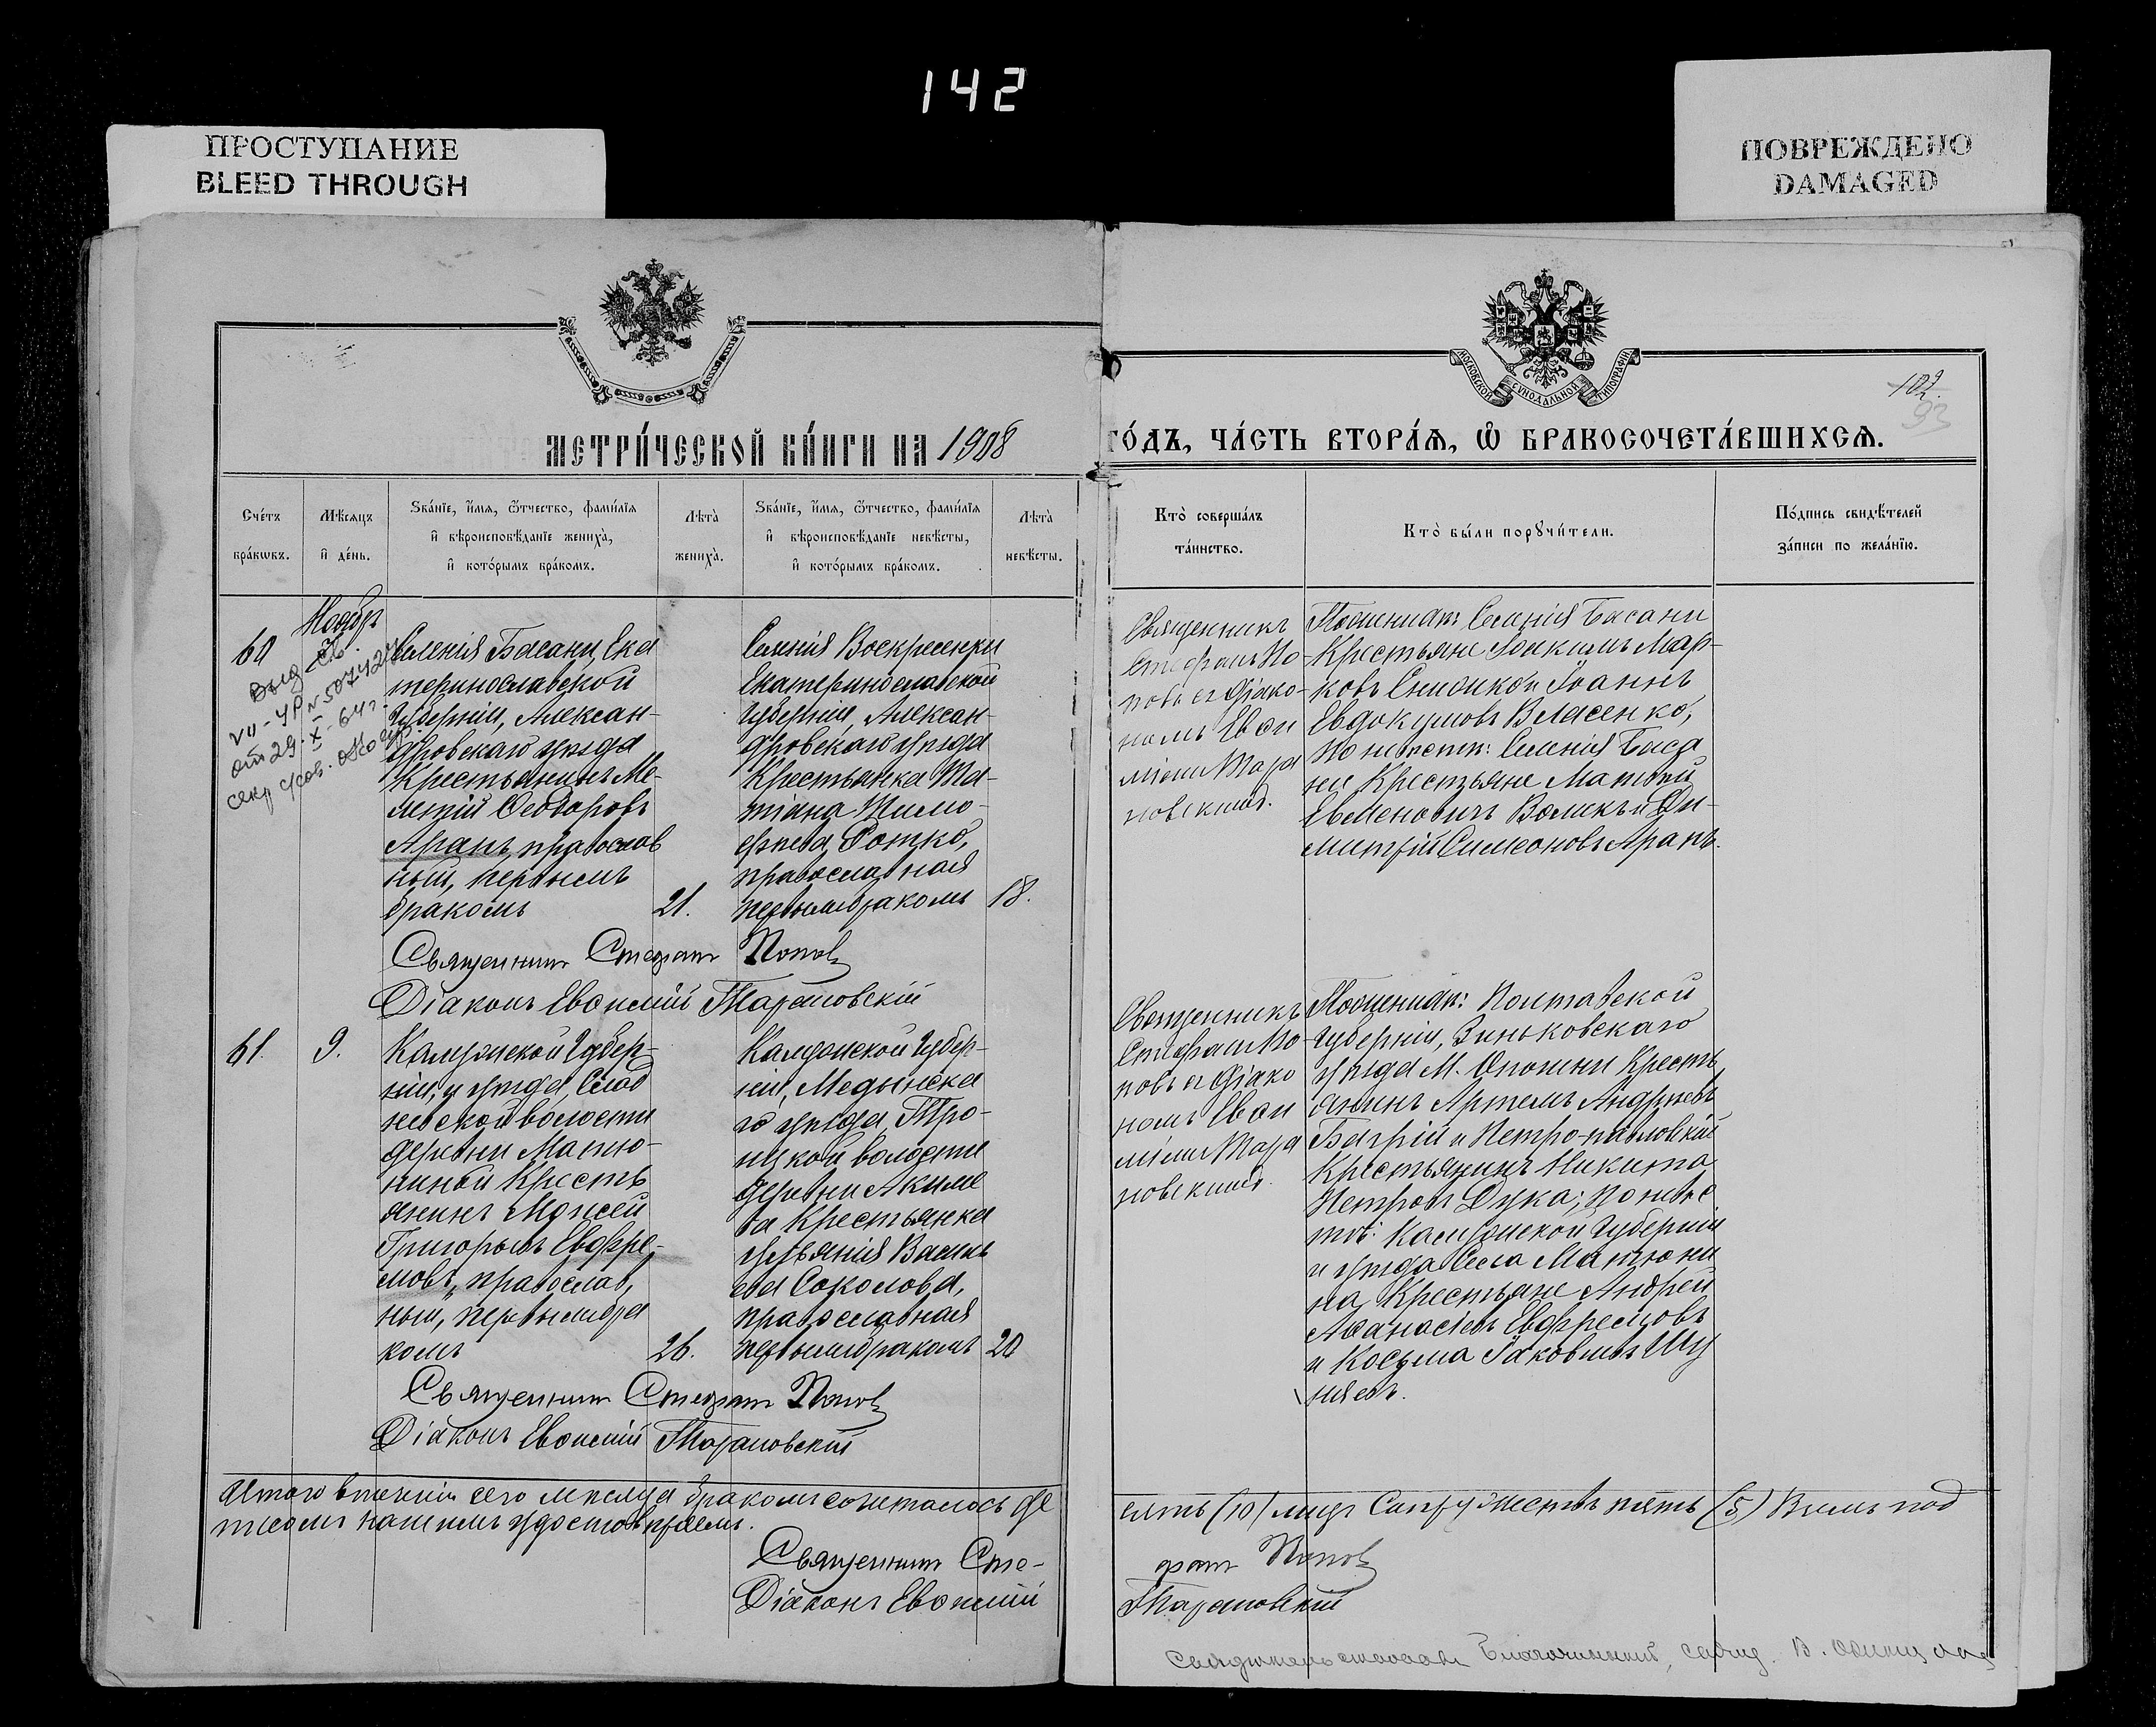 142
ПРОСТУПАНИЕ
BLEED THROUGH
ПОВРЕЖДЕНО
DAMAGED
МЕТРИ́ЧЕСКОЙ КНИ́ГИ НА 1908
ГО́ДЪ, ЧА́СТЬ ВТОРА́Ѧ, Ѡ҆ БРАКОСОЧЕТА́ВШИХСѦ.
МОСКОВСКОЙ СѴНОДАЛЬНОЙ ТИПОГРАФІИ
102
93
Сче́тъ
бра́кѡвъ.
Мѣ́сѧцъ
и҆ де́нь.
Ѕва́нїе, и҆́мѧ, ѻ҆́тчество, фами́лїѧ
и҆ вѣроисповѣ́данїе жениха̀,
и҆ кото́рымъ бра́комъ.
Лѣта̀
жениха̀.
Ѕва́нїе, и҆́мѧ, ѻ҆́тчество, фами́лїѧ
и҆ вѣроисповѣ́данїе невѣ́сты,
и҆ кото́рымъ бра́комъ.
Лѣта̀
невѣ́сты.
Кто̀ соверша́лъ
та́инство.
Кто̀ бы́ли порꙋчи́тели.
По́дпись свидѣ́телей
за́писи по жела́нїю.
60
Ноябрь
Выд. св.
от 29. X. 64 г.
Селенія Басани, Ека
теринославской
губерніи, Алексан-
дровскаго уѣзда
Крестьянинъ Ме-
летій Ѳеодоровъ
Арапъ, православ
ный, первымъ
бракомъ
21.
Селенія Воскресенки
Екатеринославской
губерніи, Алексан-
дровскаго уѣзда
Крестьянка Та-
тіана Тимо-
ѳеева Ротко,
православная
первымъ бракомъ
18.
Священникъ
Стефанъ По-
повъ съ діако-
номъ Евѳи
міемъ Тара
новскимъ.
По женихѣ: Селенія Басани
Крестьяне Іоакимъ Мар-
ковъ и Іоаннъ
Евдокимовъ Власенко,
По невѣстѣ: Селенія Баса
ни Крестьяне Матѳей
Евменовичъ Волыкъ и Ди-
митрій Симеоновъ Арапъ.
Священникъ Стефанъ Поповъ
Діаконъ Евѳимій Тарановскій
61.
9.
Калужской Губер-
ніи, и уѣзда, Слобо
невской волости
деревни Матю-
ниной Кресть
янинъ Моисей
Григорьевъ Евфре-
мовъ, православ,
ный, первымъ бра
комъ
26.
Калужской Губер-
ніи, Медынска
го уѣзда, Тро-
ицкой волости
деревни Акиме
ва Крестьянка
Уљянія Василь
ева Соколова,
православная
первымъ бракомъ
20
Священникъ
Стефанъ По-
повъ съ діако
номъ Евѳи
міемъ Тара
новскимъ.
По женихѣ: Полтавской
губерніи, Зиньковскаго
уѣзда М. Опошни Кресть
янинъ Артемъ Андреевъ
Багрій и Петро-павловскій
Крестьянинъ Никита
Петровъ Дука; По невѣ
стѣ: Калужской губерніи
и уѣзда Села Матюни
на, Крестьяне Андрей
Аѳанасіевъ Евфремовъ
и Косьма Іаковлевъ Шу
няевъ.
Священникъ Стефанъ Поповъ
Діаконъ Евѳимій Тарановскій
Итого втеченіи сего мѣсяца бракомъ сочеталось де
сять (10) лицъ Супружествъ пять (5) Въ чемъ под
писомъ нашимъ удостовѣряемъ.
Священникъ Сте-
фанъ Поповъ
Діаконъ Евѳимій
Тарановскій
Свидѣтельствовалъ Благочинный, свящ. В.